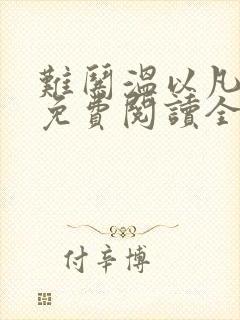 難鬨溫以凡
免費閱讀全
付辛博